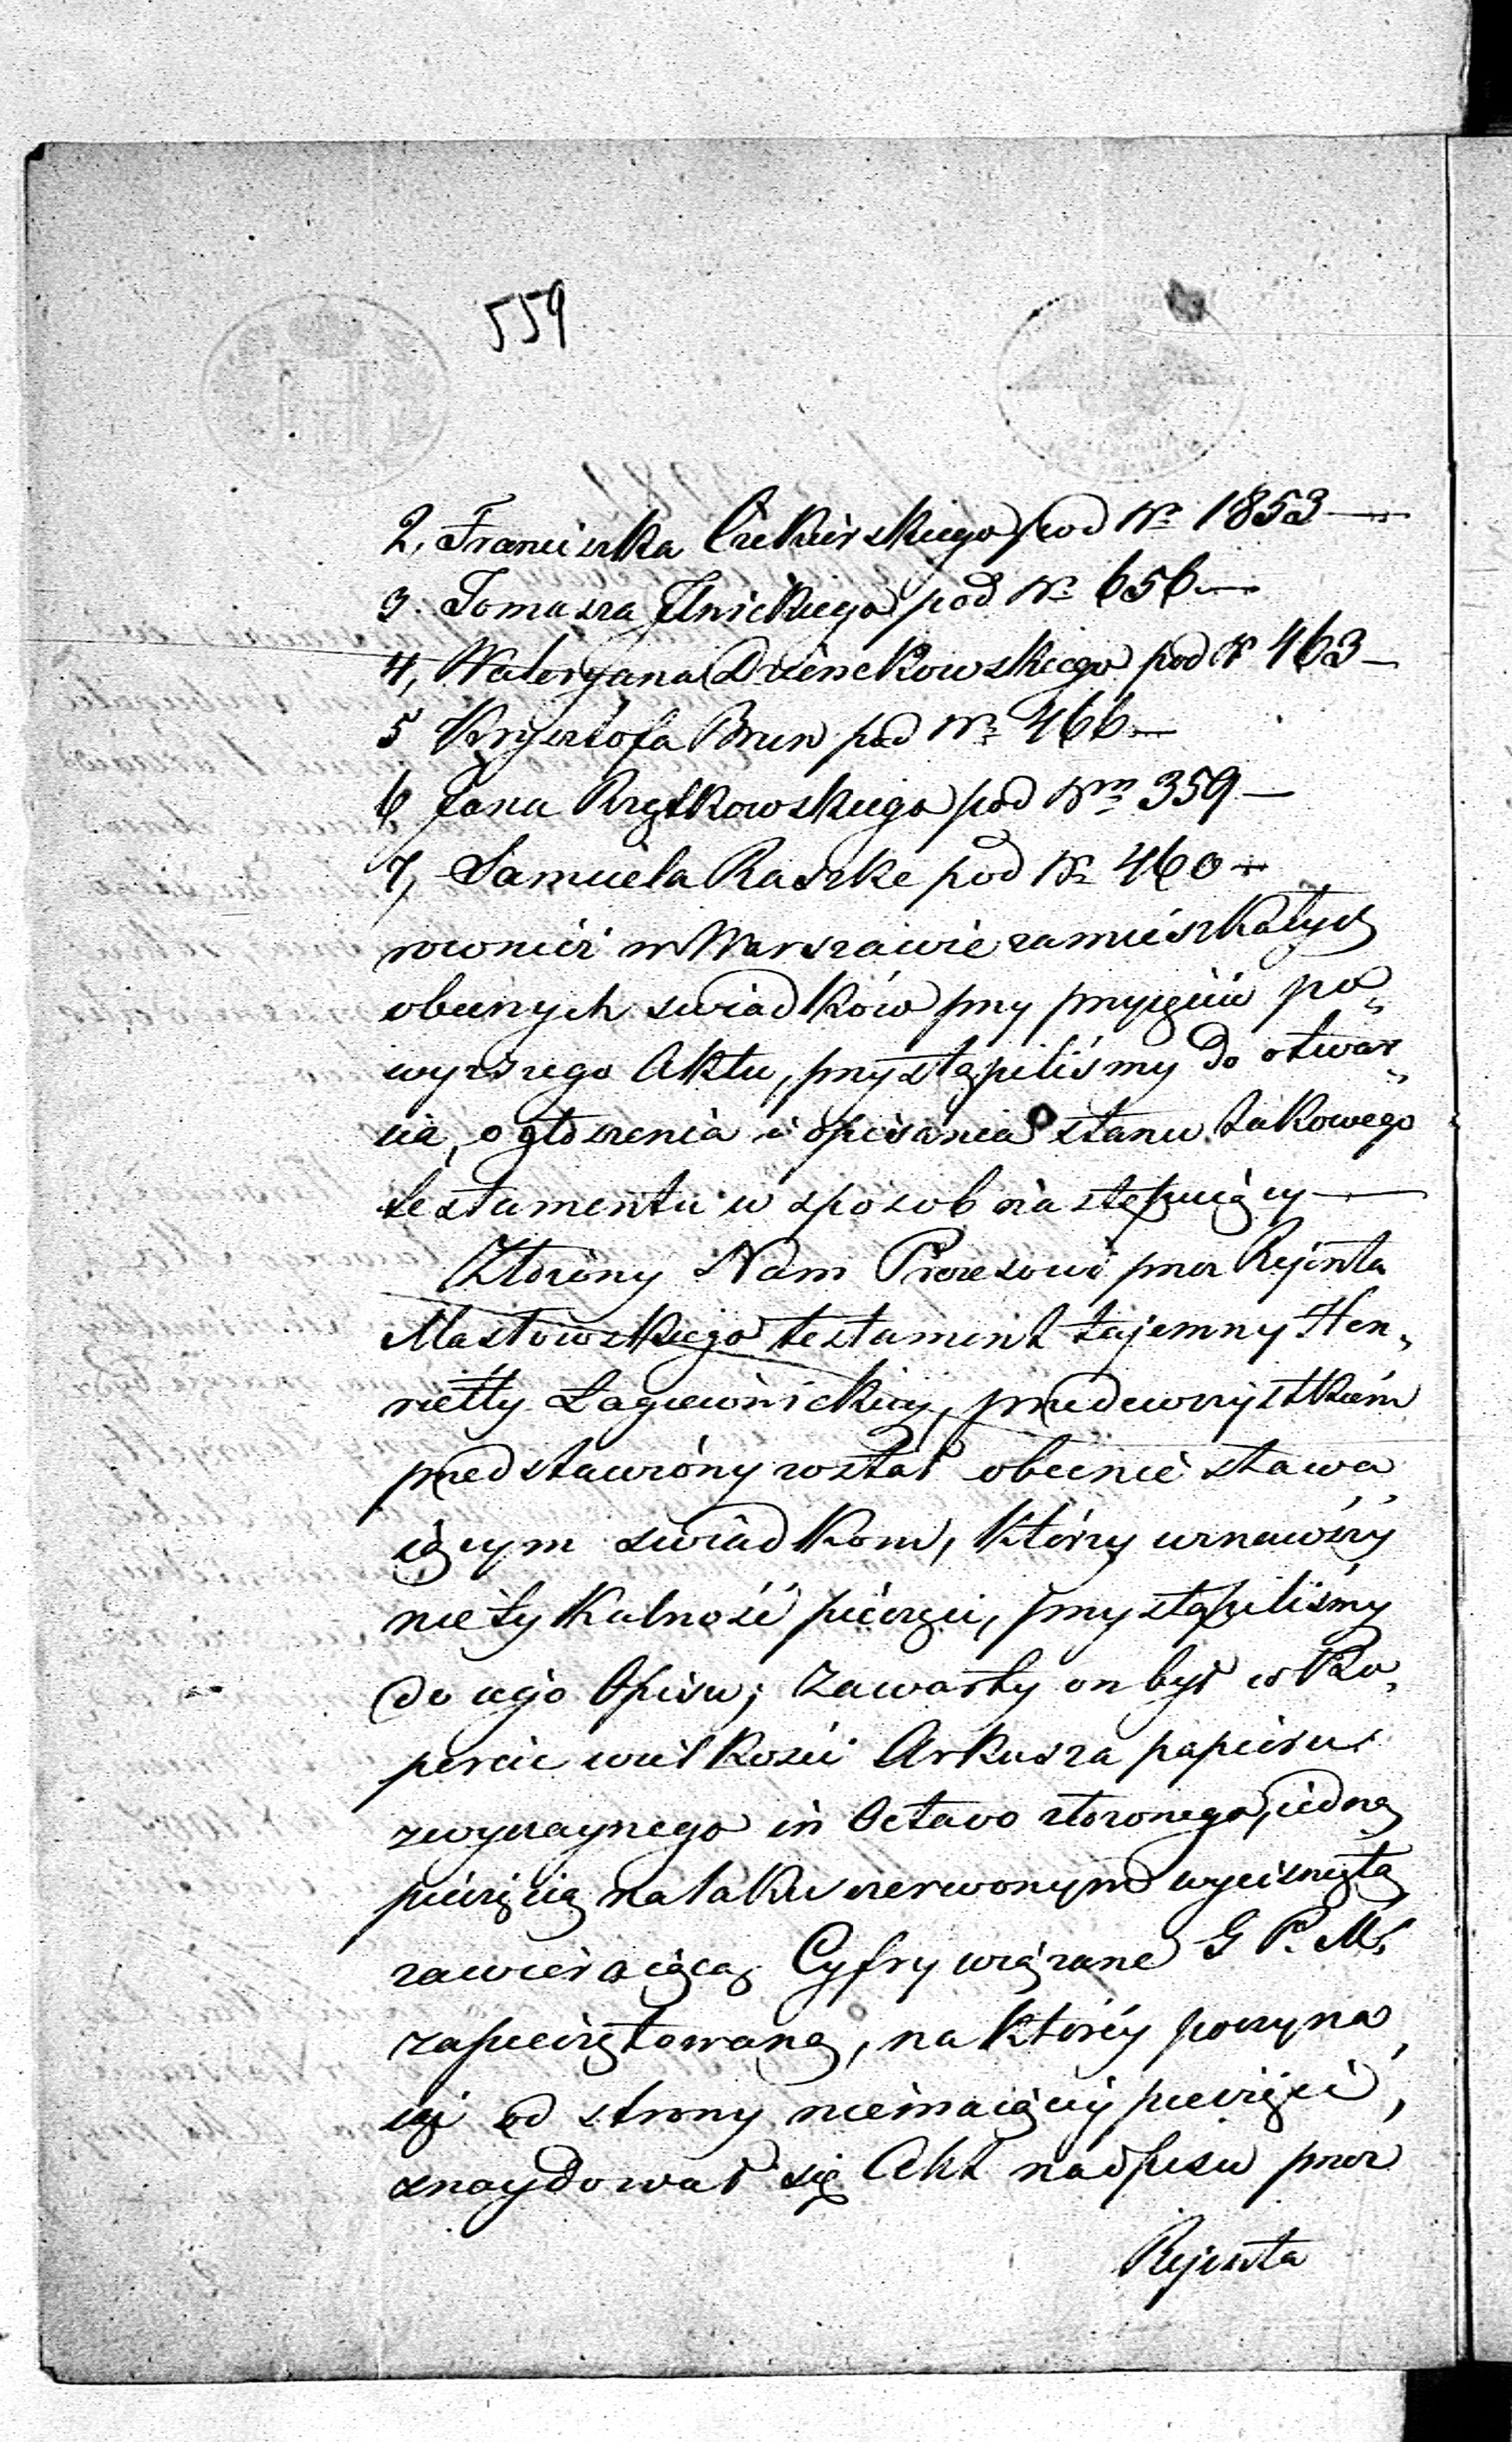 559
2, Franciszka Czekierskiego pod No 1853 —
3. Tomasza Ilnickiego pod No 656 —
4, Waleryana Dzienckowskiego pod N 463 —
5 Krzysztofa Brun pod No 466 —
6, Jana Rzętkowskiego pod Nrm 359 —
7, Samuela Raszke pod No 460 —
rowonież w Warszawie zamieszkałych
obecnych swiadków przy przyięciu po„
wyższego Aktu, przystąpiliśmy do otwar„
cia, ogłoszenia i opisania stanu takowego
testamentu w sposob następuiący —
Złożony Nam Prezesowi przez Rejenta
Masłowskiego testament tajemny Hen„
rietty Łagiewnickiey, przedewszystkiem
przedstawiony został obecnie stawa„
iącym swiadkom, którzy uznawszy
nietykalność pieczęci, przystąpiliśmy
do iego Opisu; zawarty on był w Ko„
percie wielkości Arkusza papieru
zwyczaynego in Octavo złożonego, iedną
pieczęcią na laku czerwonym wycisniętą
zawieraiącą Cyfry wiązane G P. M.
zapieczętowaną, na którey poczyna„
iąc od strony niemaiącey pieczęci,
znaydował się Akt nadpisu przez
Rejenta